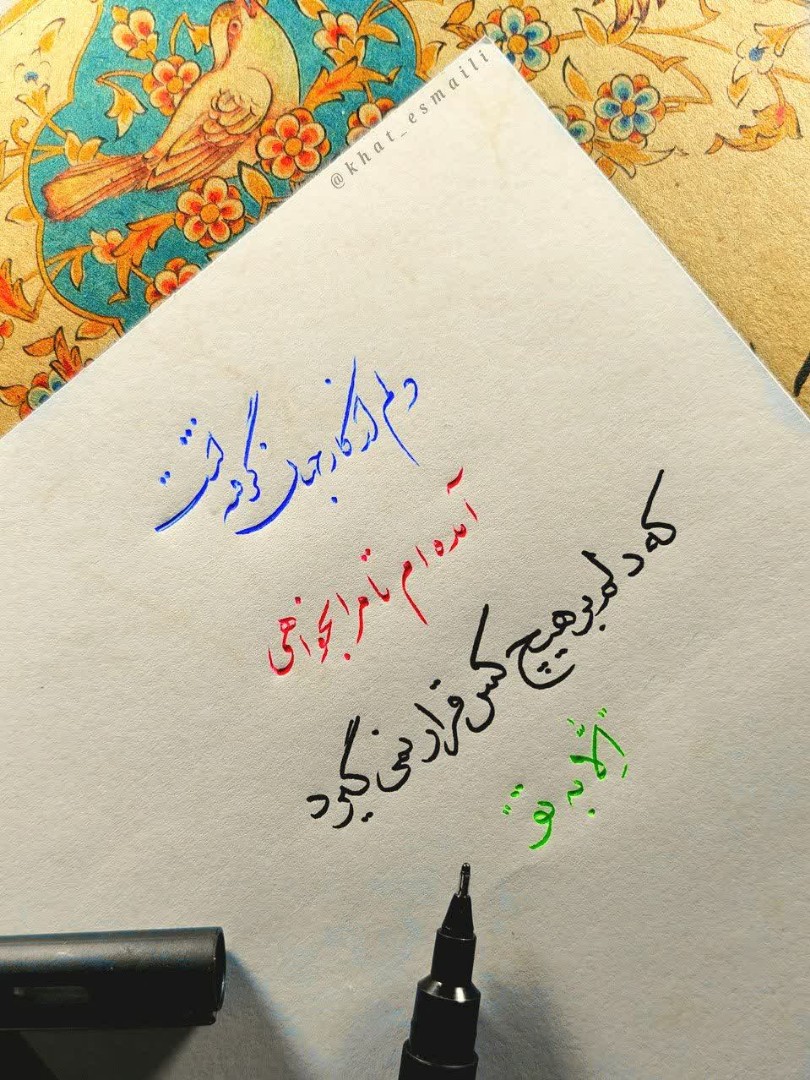 @khat_esmaili
دلم از کار جهان گرفته است
آمده ام تا مرا بخواهی
که دلم بر هیچ کس قرار نمی گیرد
اِلّا به تو